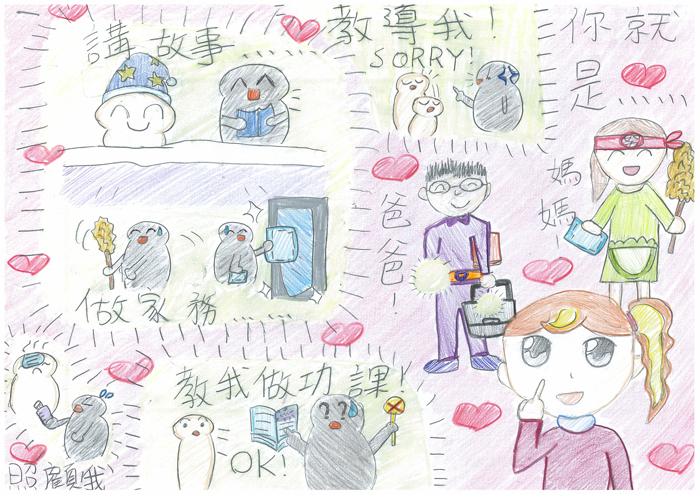 講故事......
教導我！
SORRY!
你就
是......
媽媽！
爸爸！
做家務......
教我做功課！
OK!
照顧我